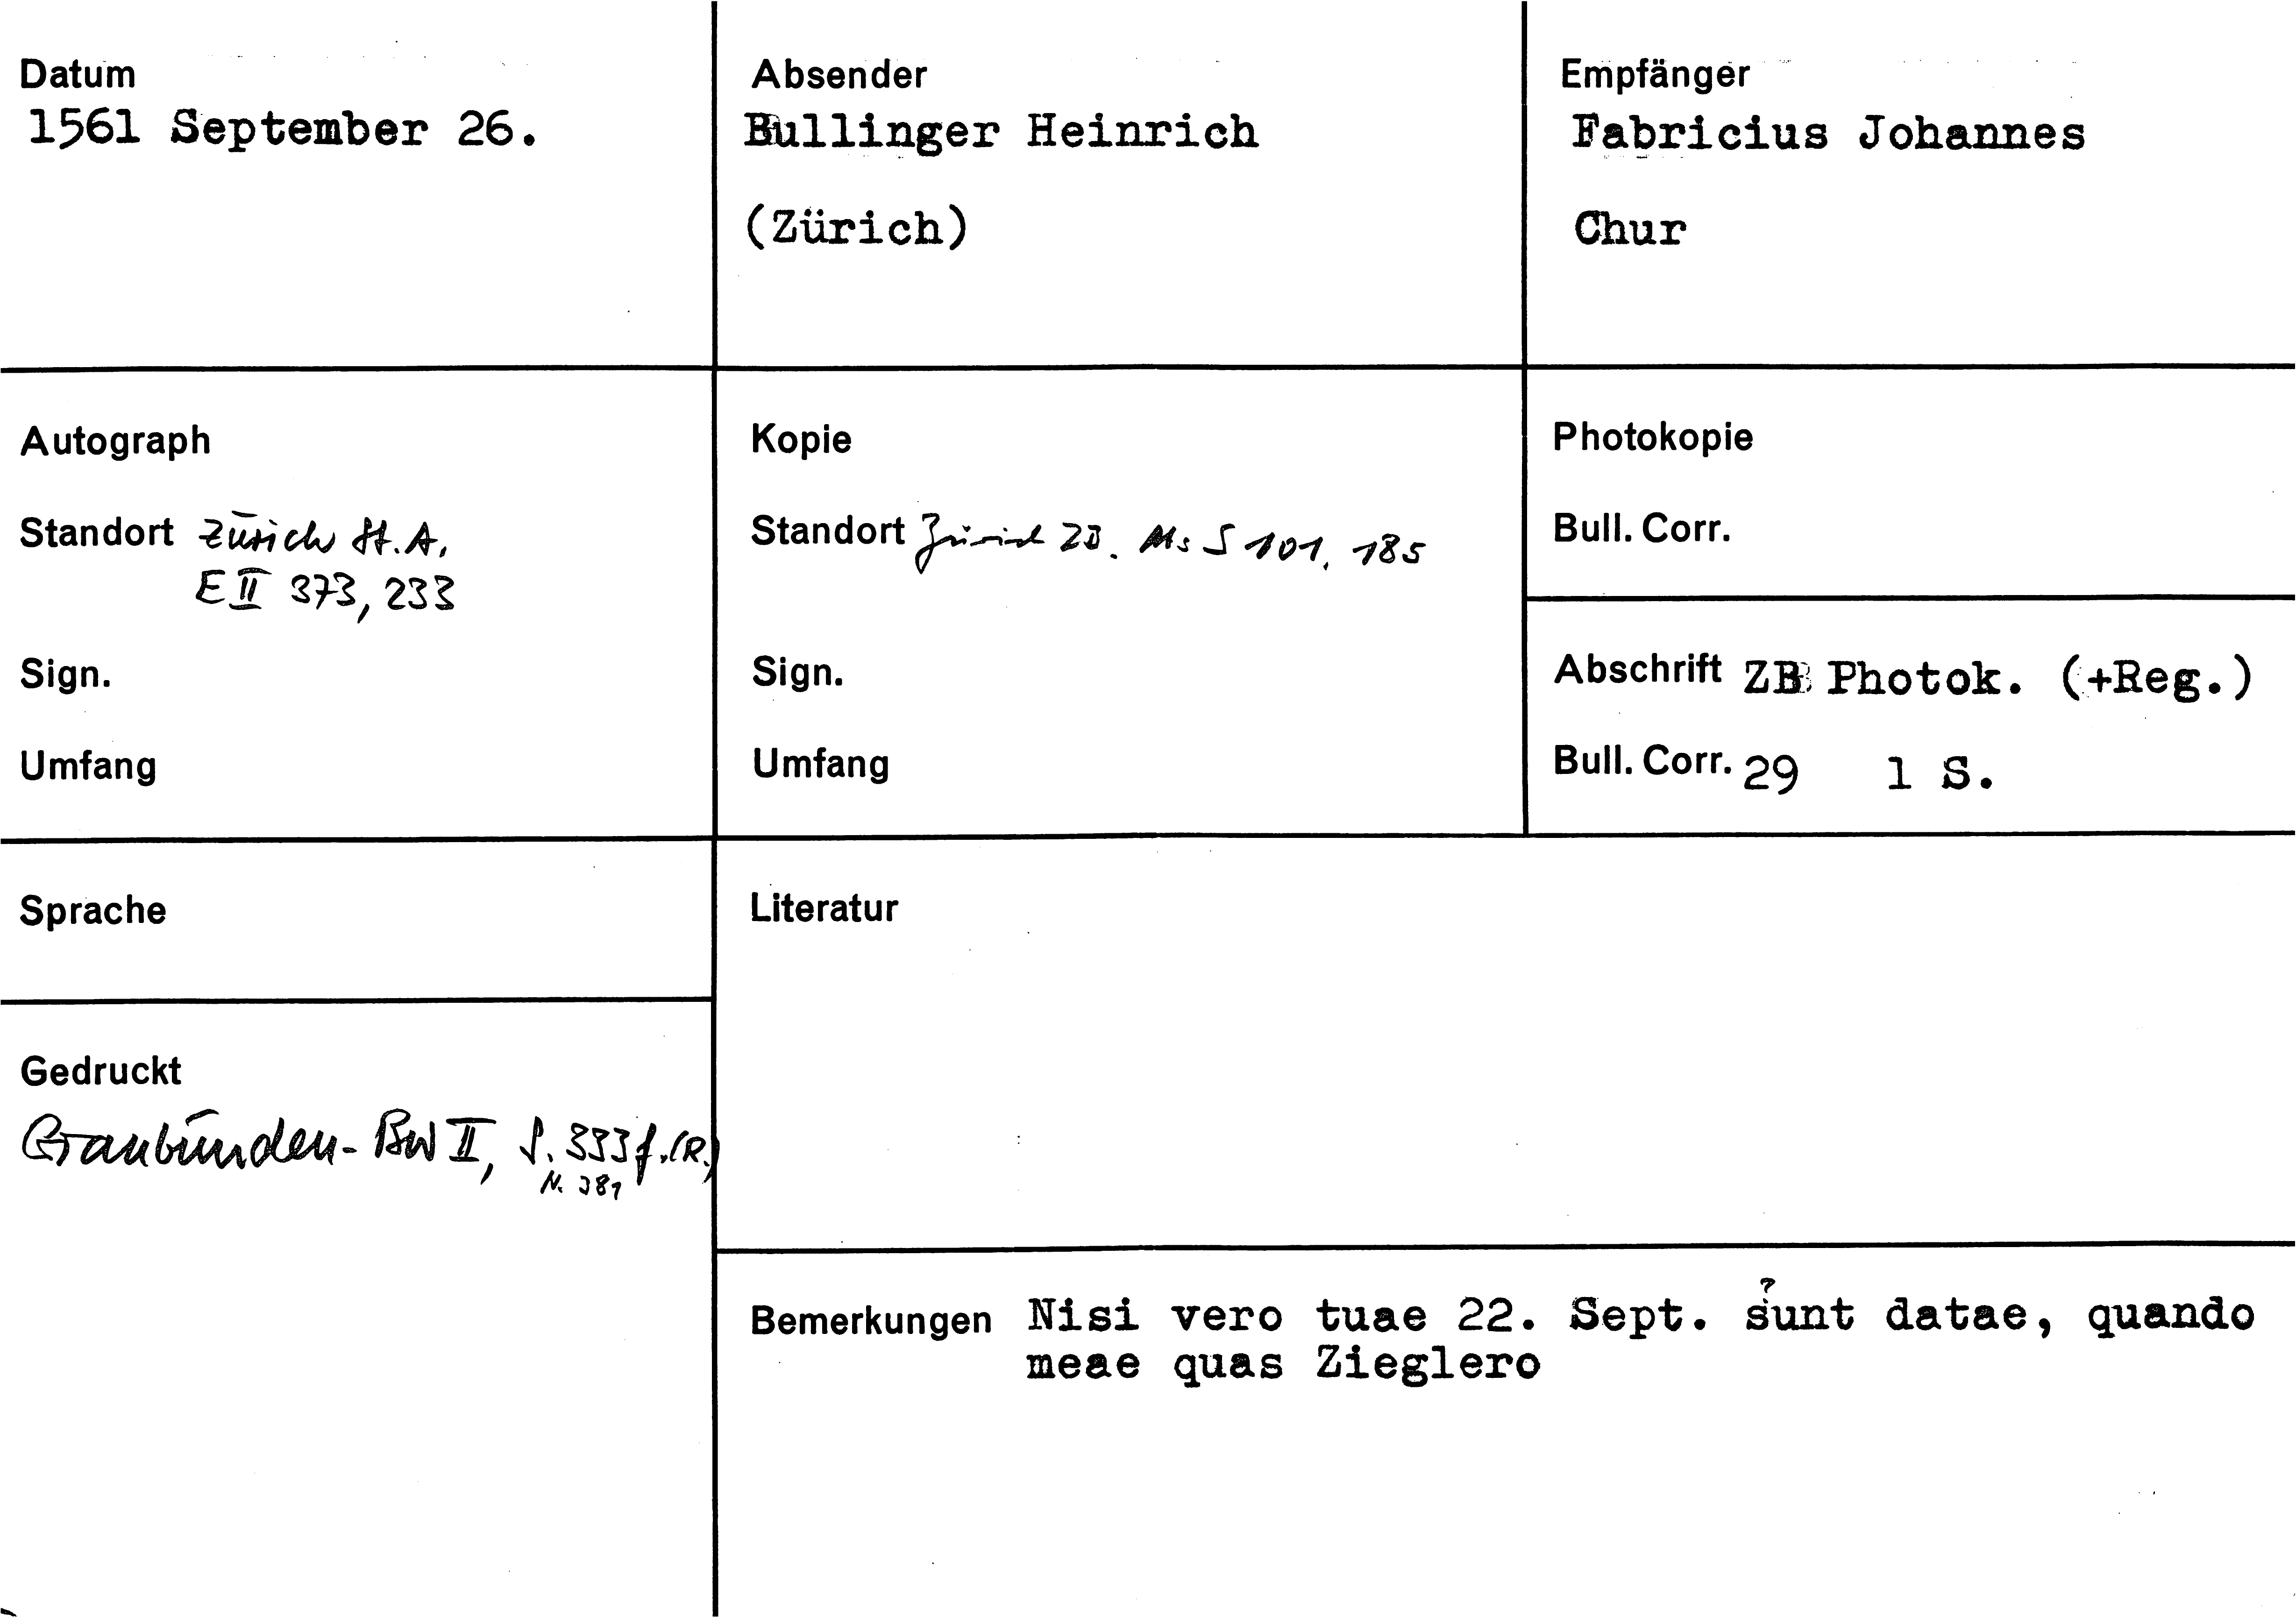 Datum
1561 September 26.
Absender
Bullinger Heinrich
(Zürich)
Empfänger
Fabricius Johannes
Chur
Autograph
Standort Zürich St.A.
E II 373, 233
Sign.
Umfang
Kopie
Standort Zürich ZB. Ms S 101, 185
Sign.
Umfang
Photokopie
Bull. Corr.
Abschrift ZB Photok. (+Reg.)
Bull. Corr. 29 1 S.
Sprache
Literatur
Gedruckt
Graubünden-BW II, S. 333f. (R.)
N. 381
Bemerkungen Nisi vero tuae 22. Sept. ?sunt datae, quando
meae quas Zieglero